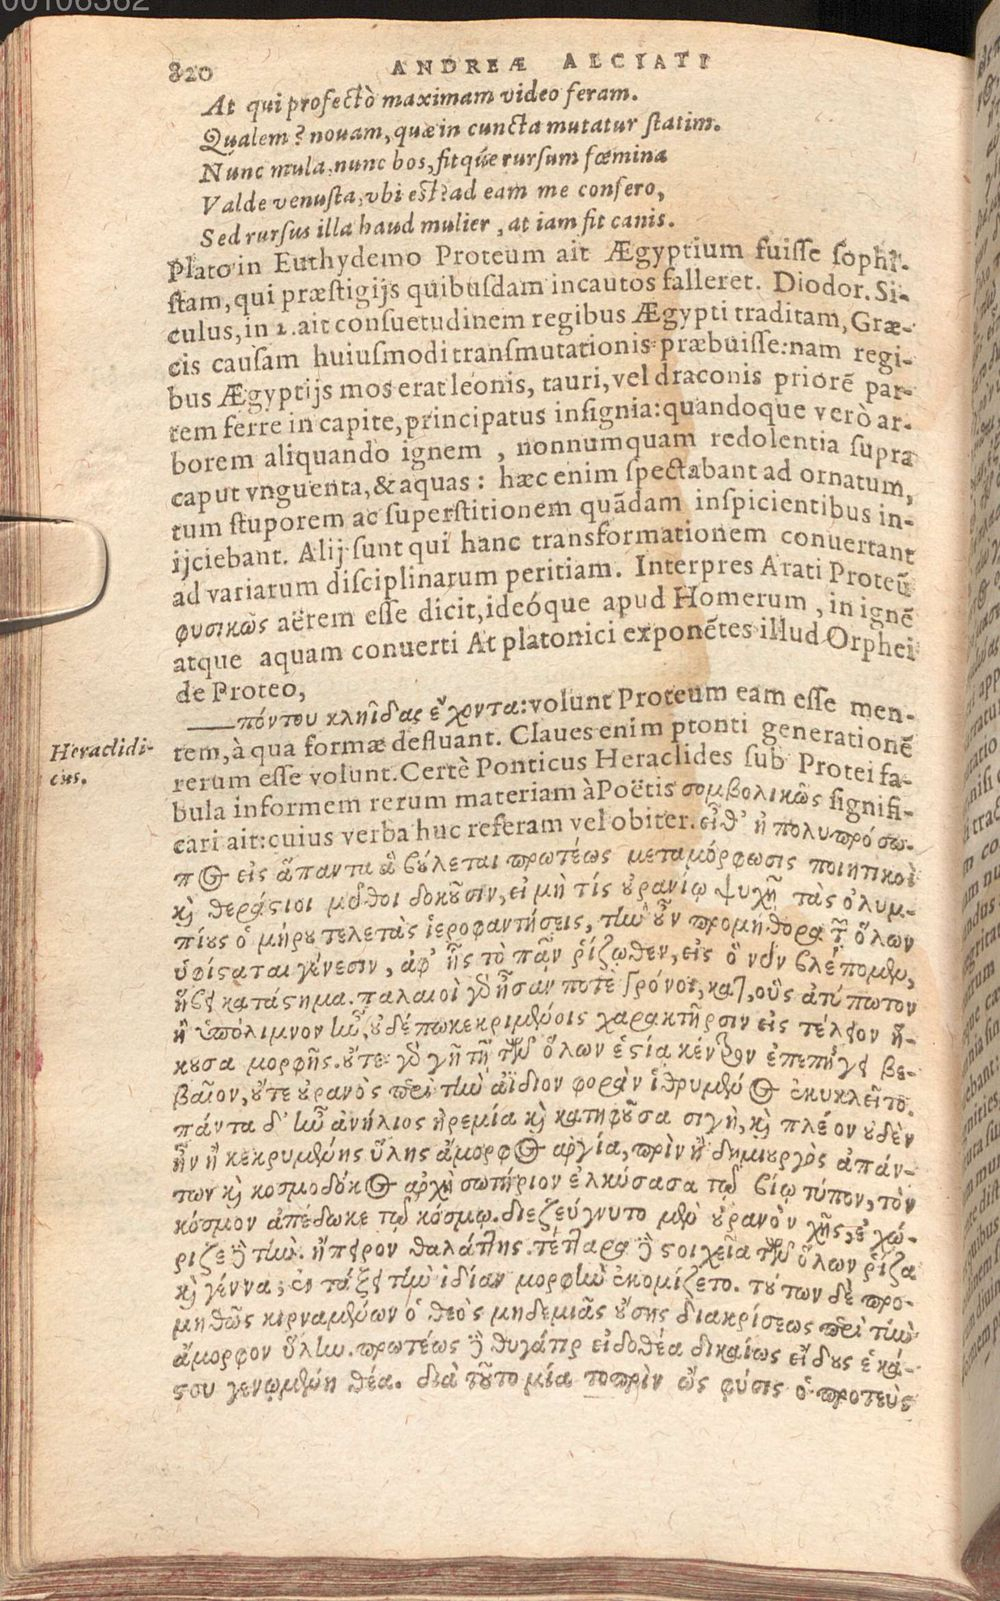 00106362
820 ANDREÆ ALCIATI
At qui profectò maximam video feram.
Qualem? nouam, quæ in cuncta mutatur ſtatim.
Nunc mula, nunc bos, fitqúe rurſum fœmina
Valde venuſta, vbi eſt? ad eam me conſero,
Sed rurſus illa haud mulier, at iam fit canis.
Plato in Euthydemo Proteum ait Ægyptium fuiſſe ſophi-
ſtam, qui præſtigijs quibuſdam incautos falleret. Diodor. Si-
culus, in 2. ait conſuetudinem regibus Ægypti traditam, Græ-
cis cauſam huiuſmodi tranſmutationis præbuiſſe: nam regi-
bus Ægyptijs mos erat leonis, tauri, vel draconis priorē par-
tem ferre in capite, principatus inſignia: quandoque verò ar-
borem aliquando ignem , nonnumquam redolentia ſupra
caput vnguenta, & aquas : hæc enim ſpectabant ad ornatum,
tum ſtuporem ac ſuperſtitionem quādam inſpicientibus in-
ijciebant. Alij ſunt qui hanc transformationem conuertant
ad variarum diſciplinarum peritiam. Interpres Arati Proteū
φυσικῶς aërem eſſe dicit, ideóque apud Homerum , in ignē
atque aquam conuerti At platonici exponētes illud Orphei
de Proteo,
—— πόντου κληῖδας ἔχοντα: volunt Proteum eam eſſe men-
tem, à qua formæ defluant. Claues enim ptonti generationē
rerum eſſe volunt. Certè Ponticus Heraclides ſub Protei fa-
Heraclidi-
cus.
bula informem rerum materiam à Poëtis συμβολικῶς ſignifi-
cari ait: cuius verba huc referam vel obiter. εἶθ' ἡ πολυπρόσω-
π⊙ εἰς ἅπαντα ἃ βούλεται πρωτέως μεταμόρφωσις ποιητικοὶ
καὶ θεράσιοι μῦθοι δοκοῦσιν, εἰ μὴ τίς οὐρανίῳ ψυχῇ τὰς ὀλυμ-
πίους ὁμήρου τελετὰς ἱεροφαντήσεις, τὴν οὖν προμήθορα τῶν ὅλων
ὑφίσαται γένεσιν, ἀφ' ἧς τὸ πᾶν ῥίζωθεν, εἰς ὃ νῦν βλέπομεν,
ἥκει κατάστημα. παλαιοὶ γὰρ ἦσαν ποτὲ χρόνοι, καθ' οὓς ἀτύπωτον
ἢ ὑπόλιμνον ἦν, οὐδέπω κεκριμένοις χαρακτῆρσιν εἰς τέλειον ἥ-
κουσα μορφῆς. οὔτε γὰρ γῆ τῇ τῶν ὅλων ἑστία κέντρον ἐπεπήγει βέ-
βαιον, οὔτε οὐρανὸς περὶ τὴν ἀΐδιον φορὰν ἱδρυμέν⊙ ἐκυκλεῖτο.
πάντα δ' ἦν ἀνήλιος ἠρεμία καὶ κατηφοῦσα σιγὴ, καὶ πλέον οὐδὲν
ἦν ἢ κεκρυμένης ὕλης ἄμορφ⊙ ἀργία, πρὶν ἢ δημιουργὸς ἁπάν-
των καὶ κοσμοδόκ⊙ ἀρχὴ σωτήριον ἑλκύσασα τῷ βίῳ τύπον, τὸν
κόσμον ἀπέδωκε τῷ κόσμῳ. διεζεύγνυτο μὲν οὐρανὸν γῆς, ἐχώ-
ριζε δὲ τὴν ἤπειρον θαλάττης. τέτταρα δὲ στοιχεῖα τῶν ὅλων ῥίζα
καὶ γέννα, ἐν τάξει τὴν ἰδίαν μορφὴν ἐκομίζετο. τούτων δὲ προ-
μηθῶς κιρναμένων ὁ θεὸς μηδεμιᾶς οὔσης διακρίσεως περὶ τὴν
ἄμορφον ὕλην. πρωτέως δὲ θυγάτηρ εἰδοθέα δικαίως εἴδους ἑκά-
στου γενομένη θέα. διὰ τοῦτο μία τοπρὶν ὡς φύσις ὁ πρωτεὺς